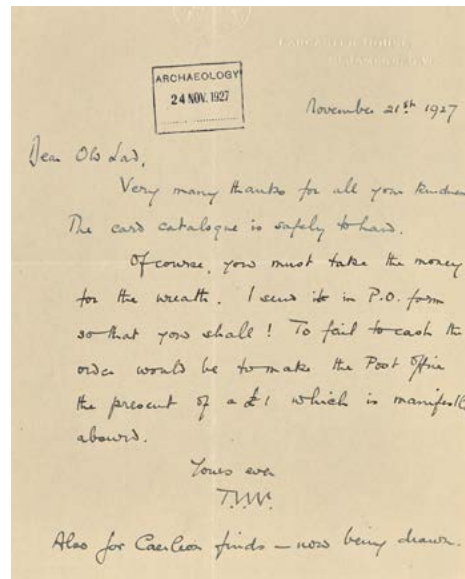 LANCASTER HOUSE,
ARCHAEOLOGY
24 NOV. 1927
November 21st 1927
Dear Old Lad,
Very many thanks for all your kindness
The card catalogue is safely to hand.
Of course, you must take the money
for the wreath. I send it in P.O. form
so that you shall! To fail to cash the
order would be to make the Post Office
the present of a £1 which is manifestly
absurd.
Yours ever
Also for Caerleon finds – now being drawn.